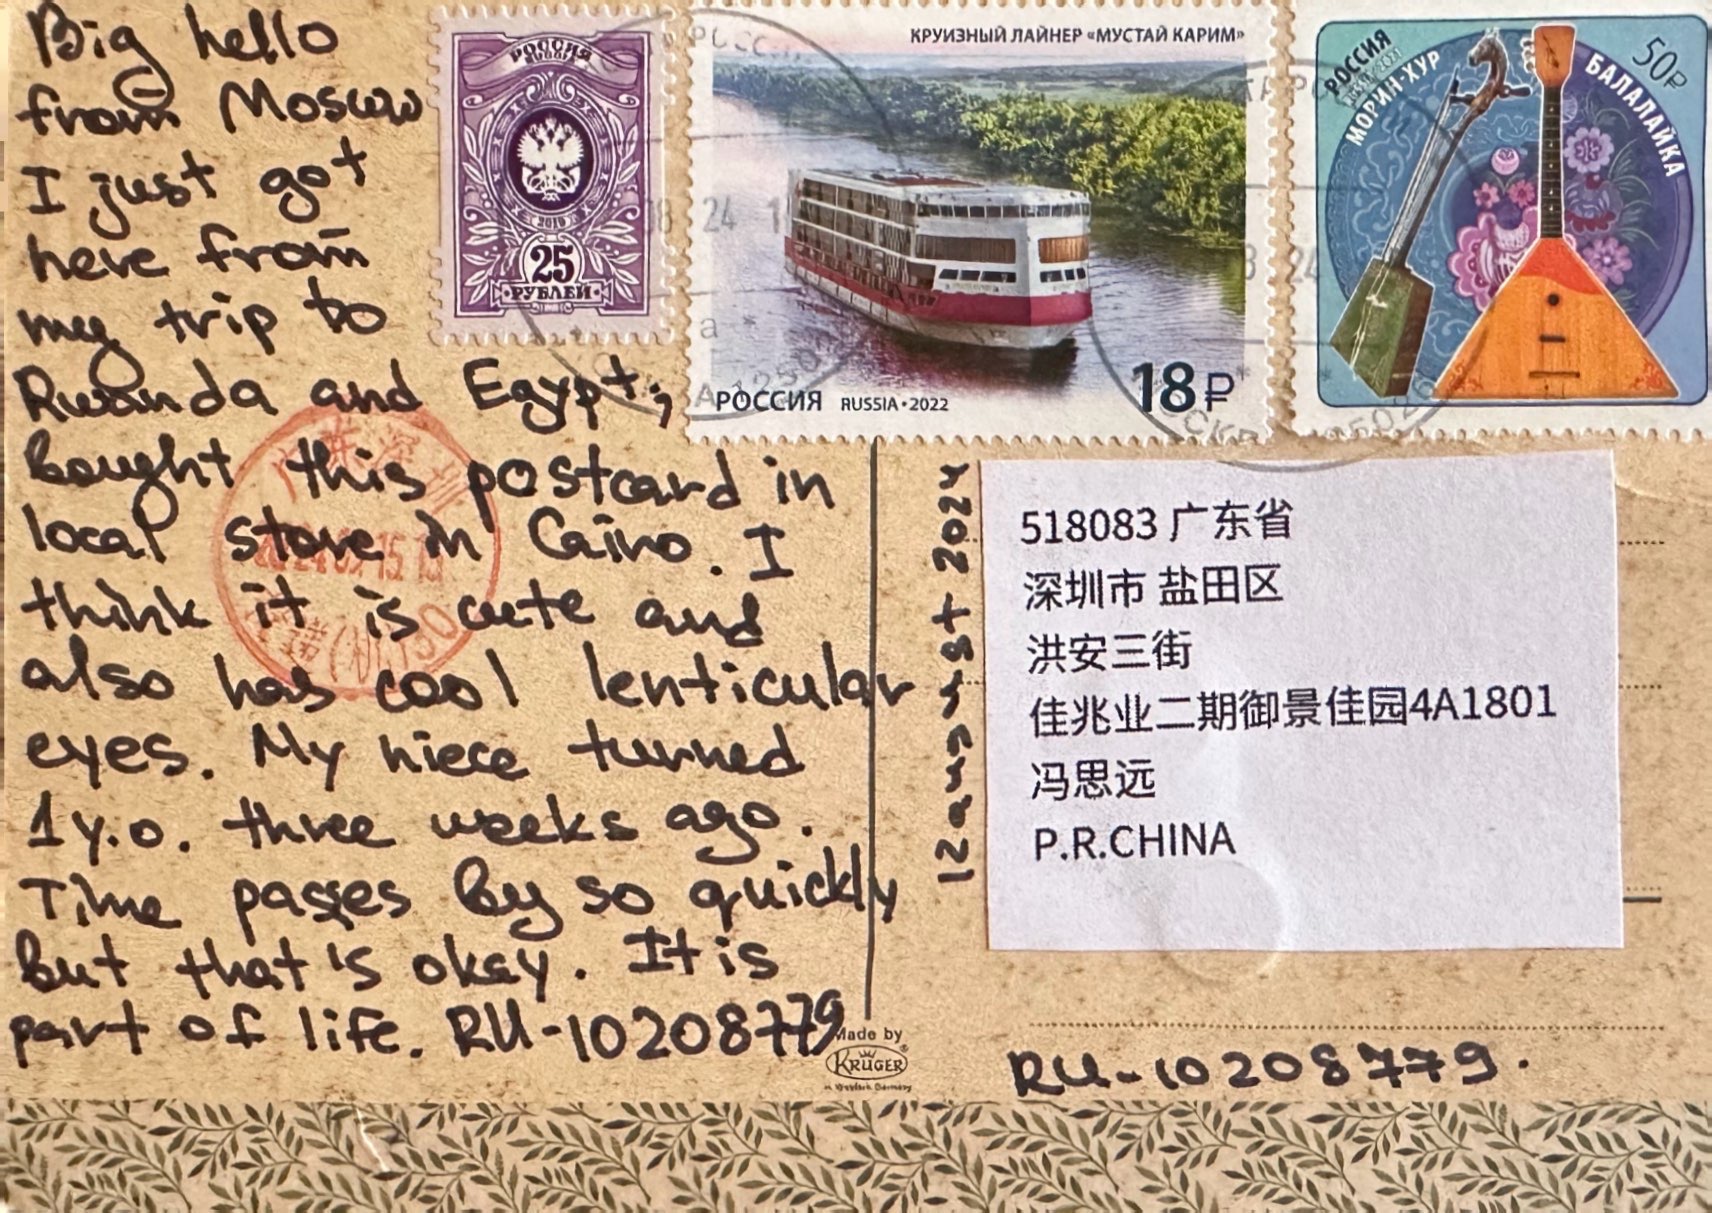 Big hello
from Moscow
I just got
here from
my trip to
Rwanda and Egypt;
bought this postcard in
local store in Cairo. I
think it is cute and
also has cool lenticular
eyes. My niece turned
1 y.o. three weeks ago.
Time passes by so quickly
but that is okay. It is
part of life. RU-10208779
РОССИЯ
2019
25
РУБЛЕЙ
КРУИЗНЫЙ ЛАЙНЕР «МУСТАЙ КАРИМ»
РОССИЯ RUSSIA•2022
18₽
РОССИЯ
МОРИН-ХУР
БАЛАЛАЙКА
50₽
广东深圳
12 august 2024
518083 广东省
深圳市 盐田区
洪安三街
佳兆业二期御景佳园4A1801
冯思远
P.R.CHINA
Made by
KRÜGER
RU-10208779.